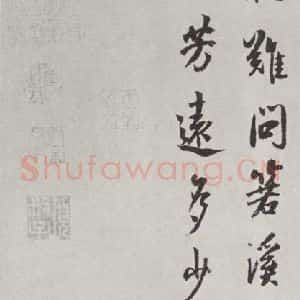 難問箬溪
芳遠多少
Shufawang.cn